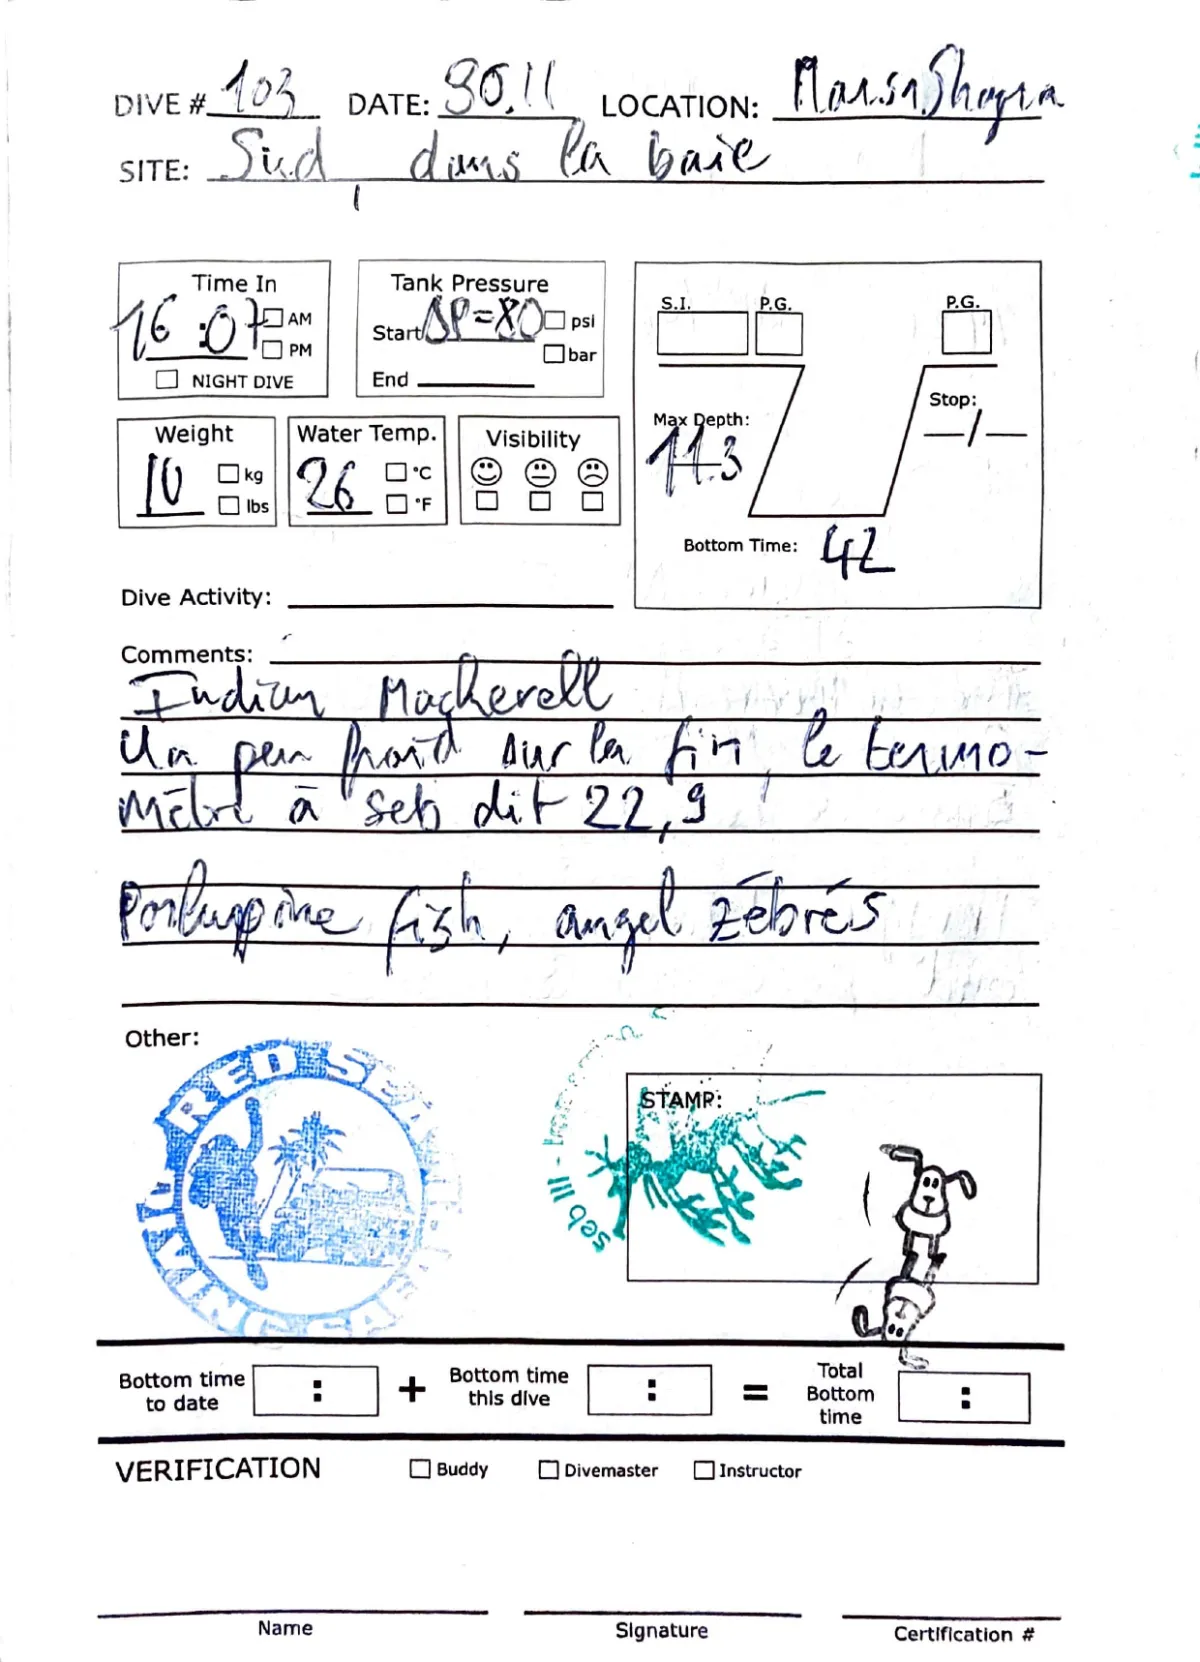 DIVE # 103 DATE: 30.11 LOCATION: Marsa Shagra
SITE: Sud, dans la baie
Time In
16:07 AM
PM
NIGHT DIVE
Tank Pressure
Start ΔP=80 psi
bar
End
S.I. P.G. P.G.
Max Depth: Stop:
11.3
Bottom Time: 42
Weight
10 kg
lbs
Water Temp.
26 °C
°F
Visibility
Dive Activity:
Comments:
Indian Mackerell
Un peu froid sur la fin, le termo-
mètre à seb dit 22,9
Porkuppine fish, angel zébrés
Other:
RED SEA
DIVING SAFARI
seb III -
STAMP:
Bottom time to date : + Bottom time this dive : = Total Bottom time :
VERIFICATION Buddy Divemaster Instructor
Name Signature Certification #